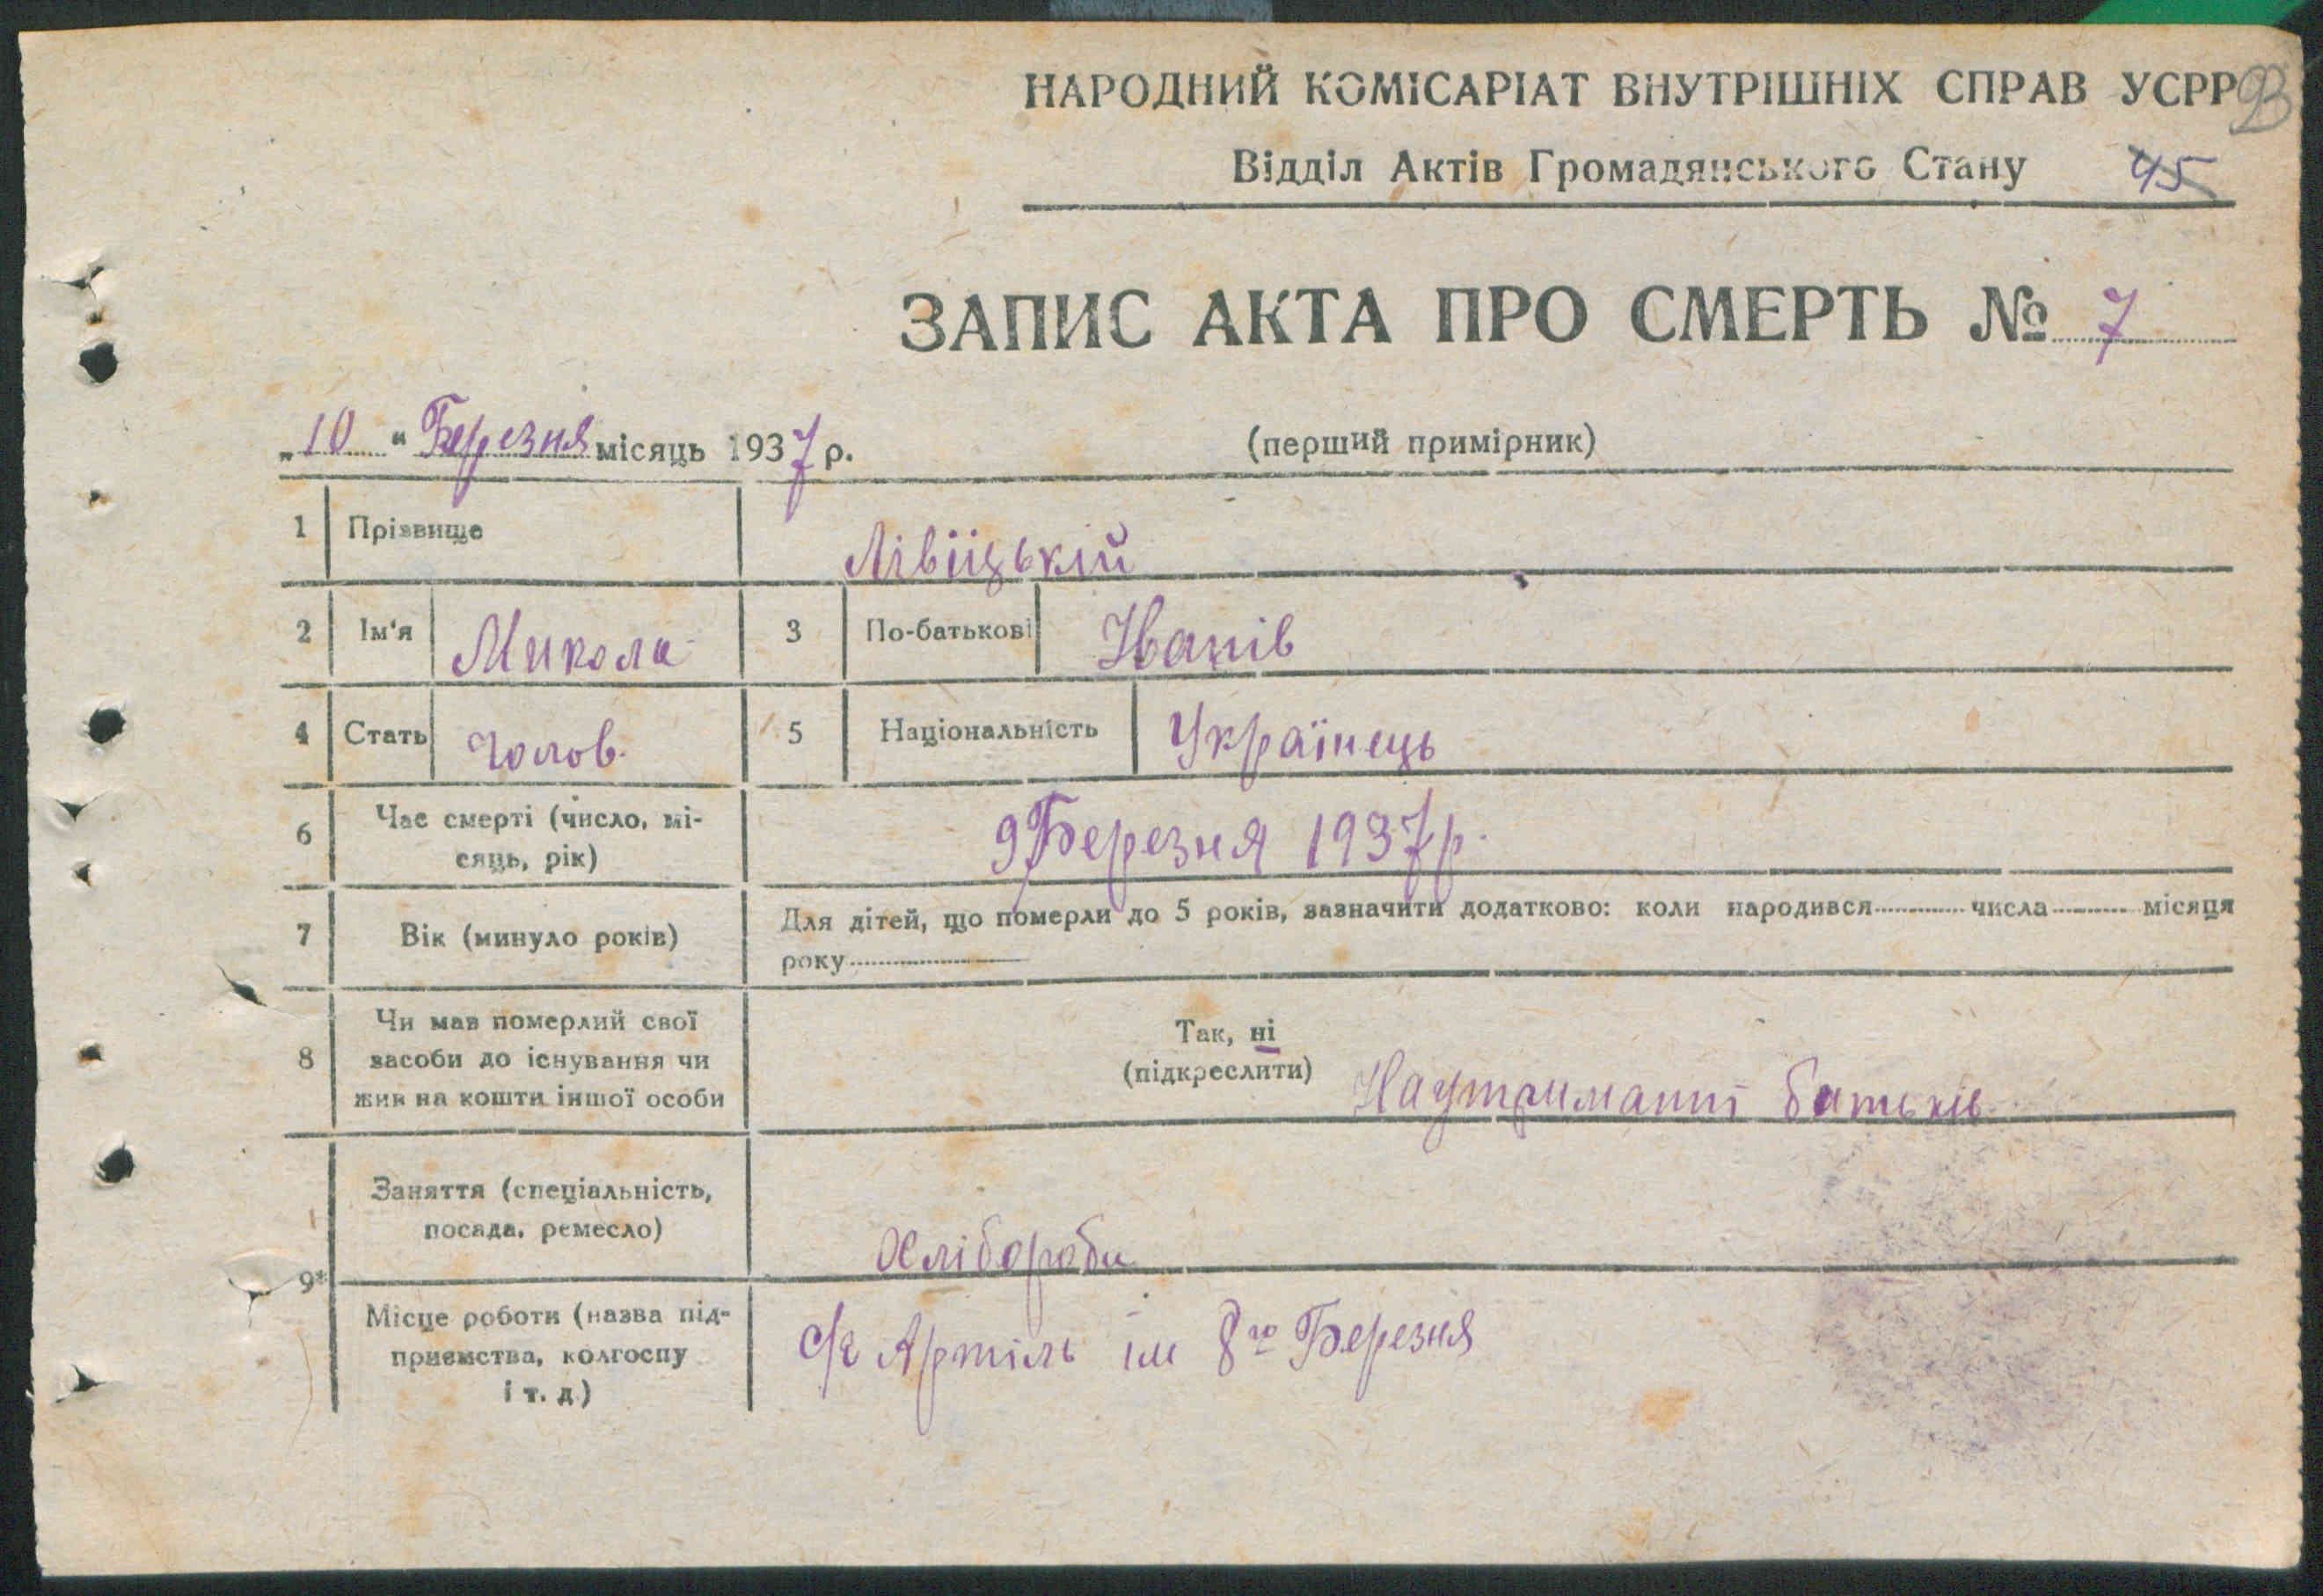 НАРОДНИЙ КОМІСАРІАТ ВНУТРІШНІХ СПРАВ УСРР 93
Відділ Актів Громадянського Стану 45
ЗАПИС АКТА ПРО СМЕРТЬ № 7
„10“ Березня місяць 1937 р.
(перший примірник)
1 Прізвище Лівіцькій
2 Ім'я Микола 3 По-батькові Іванів
4 Стать чолов. 5 Національність Українець
6 Час смерті (число, мі-
сяць, рік) 9 Березня 1937 р.
7 Вік (минуло років) Для дітей, що померли до 5 років, зазначити додатково: коли народився ............ числа ............ місяця
року ............
8 Чи мав померлий свої
засоби до існування чи
жив на кошти іншої особи
Так, ні
(підкреслити) На утриманні батьків
9* Заняття (спеціальність,
посада, ремесло) Хлібороби
Місце роботи (назва під-
приємства, колгоспу
і т. д.)
с/г Артіль ім 8го Березня